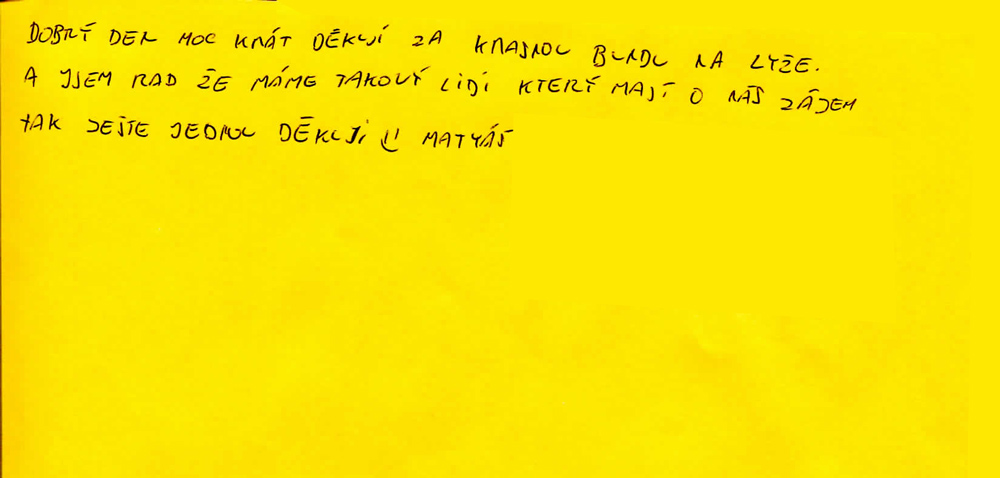 DOBRÝ DEN MOC KRÁT DĚKUJÍ ZA KRASNOU BUNDU NA LYŽE.
A JSEM RAD ŽE MÁME TAKOVÝ LIDÍ KTERÝ MAJÍ O NÁS ZÁJEM
TAK JEŠTE JEDNOU DĚKUJI MATYÁŠ